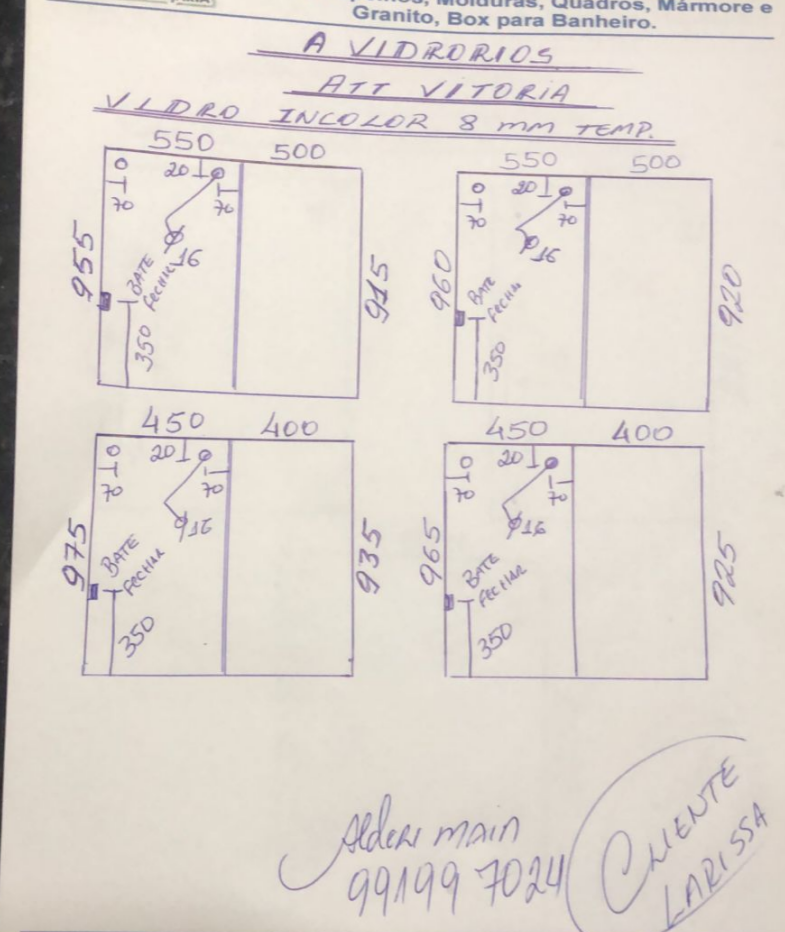 Molduras, Quadros, Mármore e
Granito, Box para Banheiro.
A VIDRORIOS
ATT VITORIA
VIDRO INCOLOR 8 mm TEMP.
550 500
20
70 70
16
955
BATE
FECHAR
350
915
550 500
20
70 70
16
960
BATE
FECHAR
350
920
450 400
20
70 70
16
975
BATE
FECHAR
350
935
450 400
20
70 70
16
965
BATE
FECHAR
350
925
99199 7024
CLIENTE
LARISSA